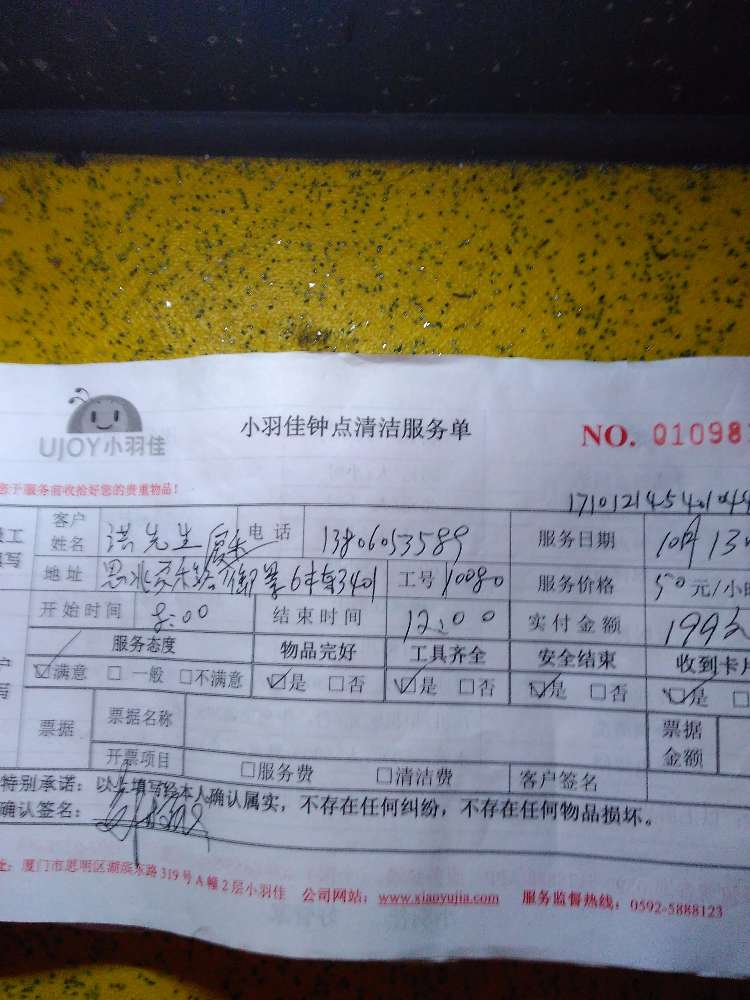 UJOY小羽佳
小羽佳钟点清洁服务单
NO. 010987
于服务前收拾好您的贵重物品!
工 客户姓名 洪先生 电话 13806053589 服务日期 10月13
填写 地址 6 3401 工号 10080 服务价格 50元/小
开始时间 8:00 结束时间 12:00 实付金额 199元
服务态度 物品完好 工具齐全 安全结束 收到卡
☑满意 □一般 □不满意 ☑是 □否 ☑是 □否 ☑是 □否 ☑是 □
票据 票据名称 票据金额
开票项目 □服务费 □清洁费 客户签名
特别承诺:以上填写经本人确认属实,不存在任何纠纷,不存在任何物品损坏。
确认签名:
址:厦门市思明区湖滨东路319号A幢2层小羽佳 公司网站:www.xiaoyujia.com 服务监督热线:0592-5888123